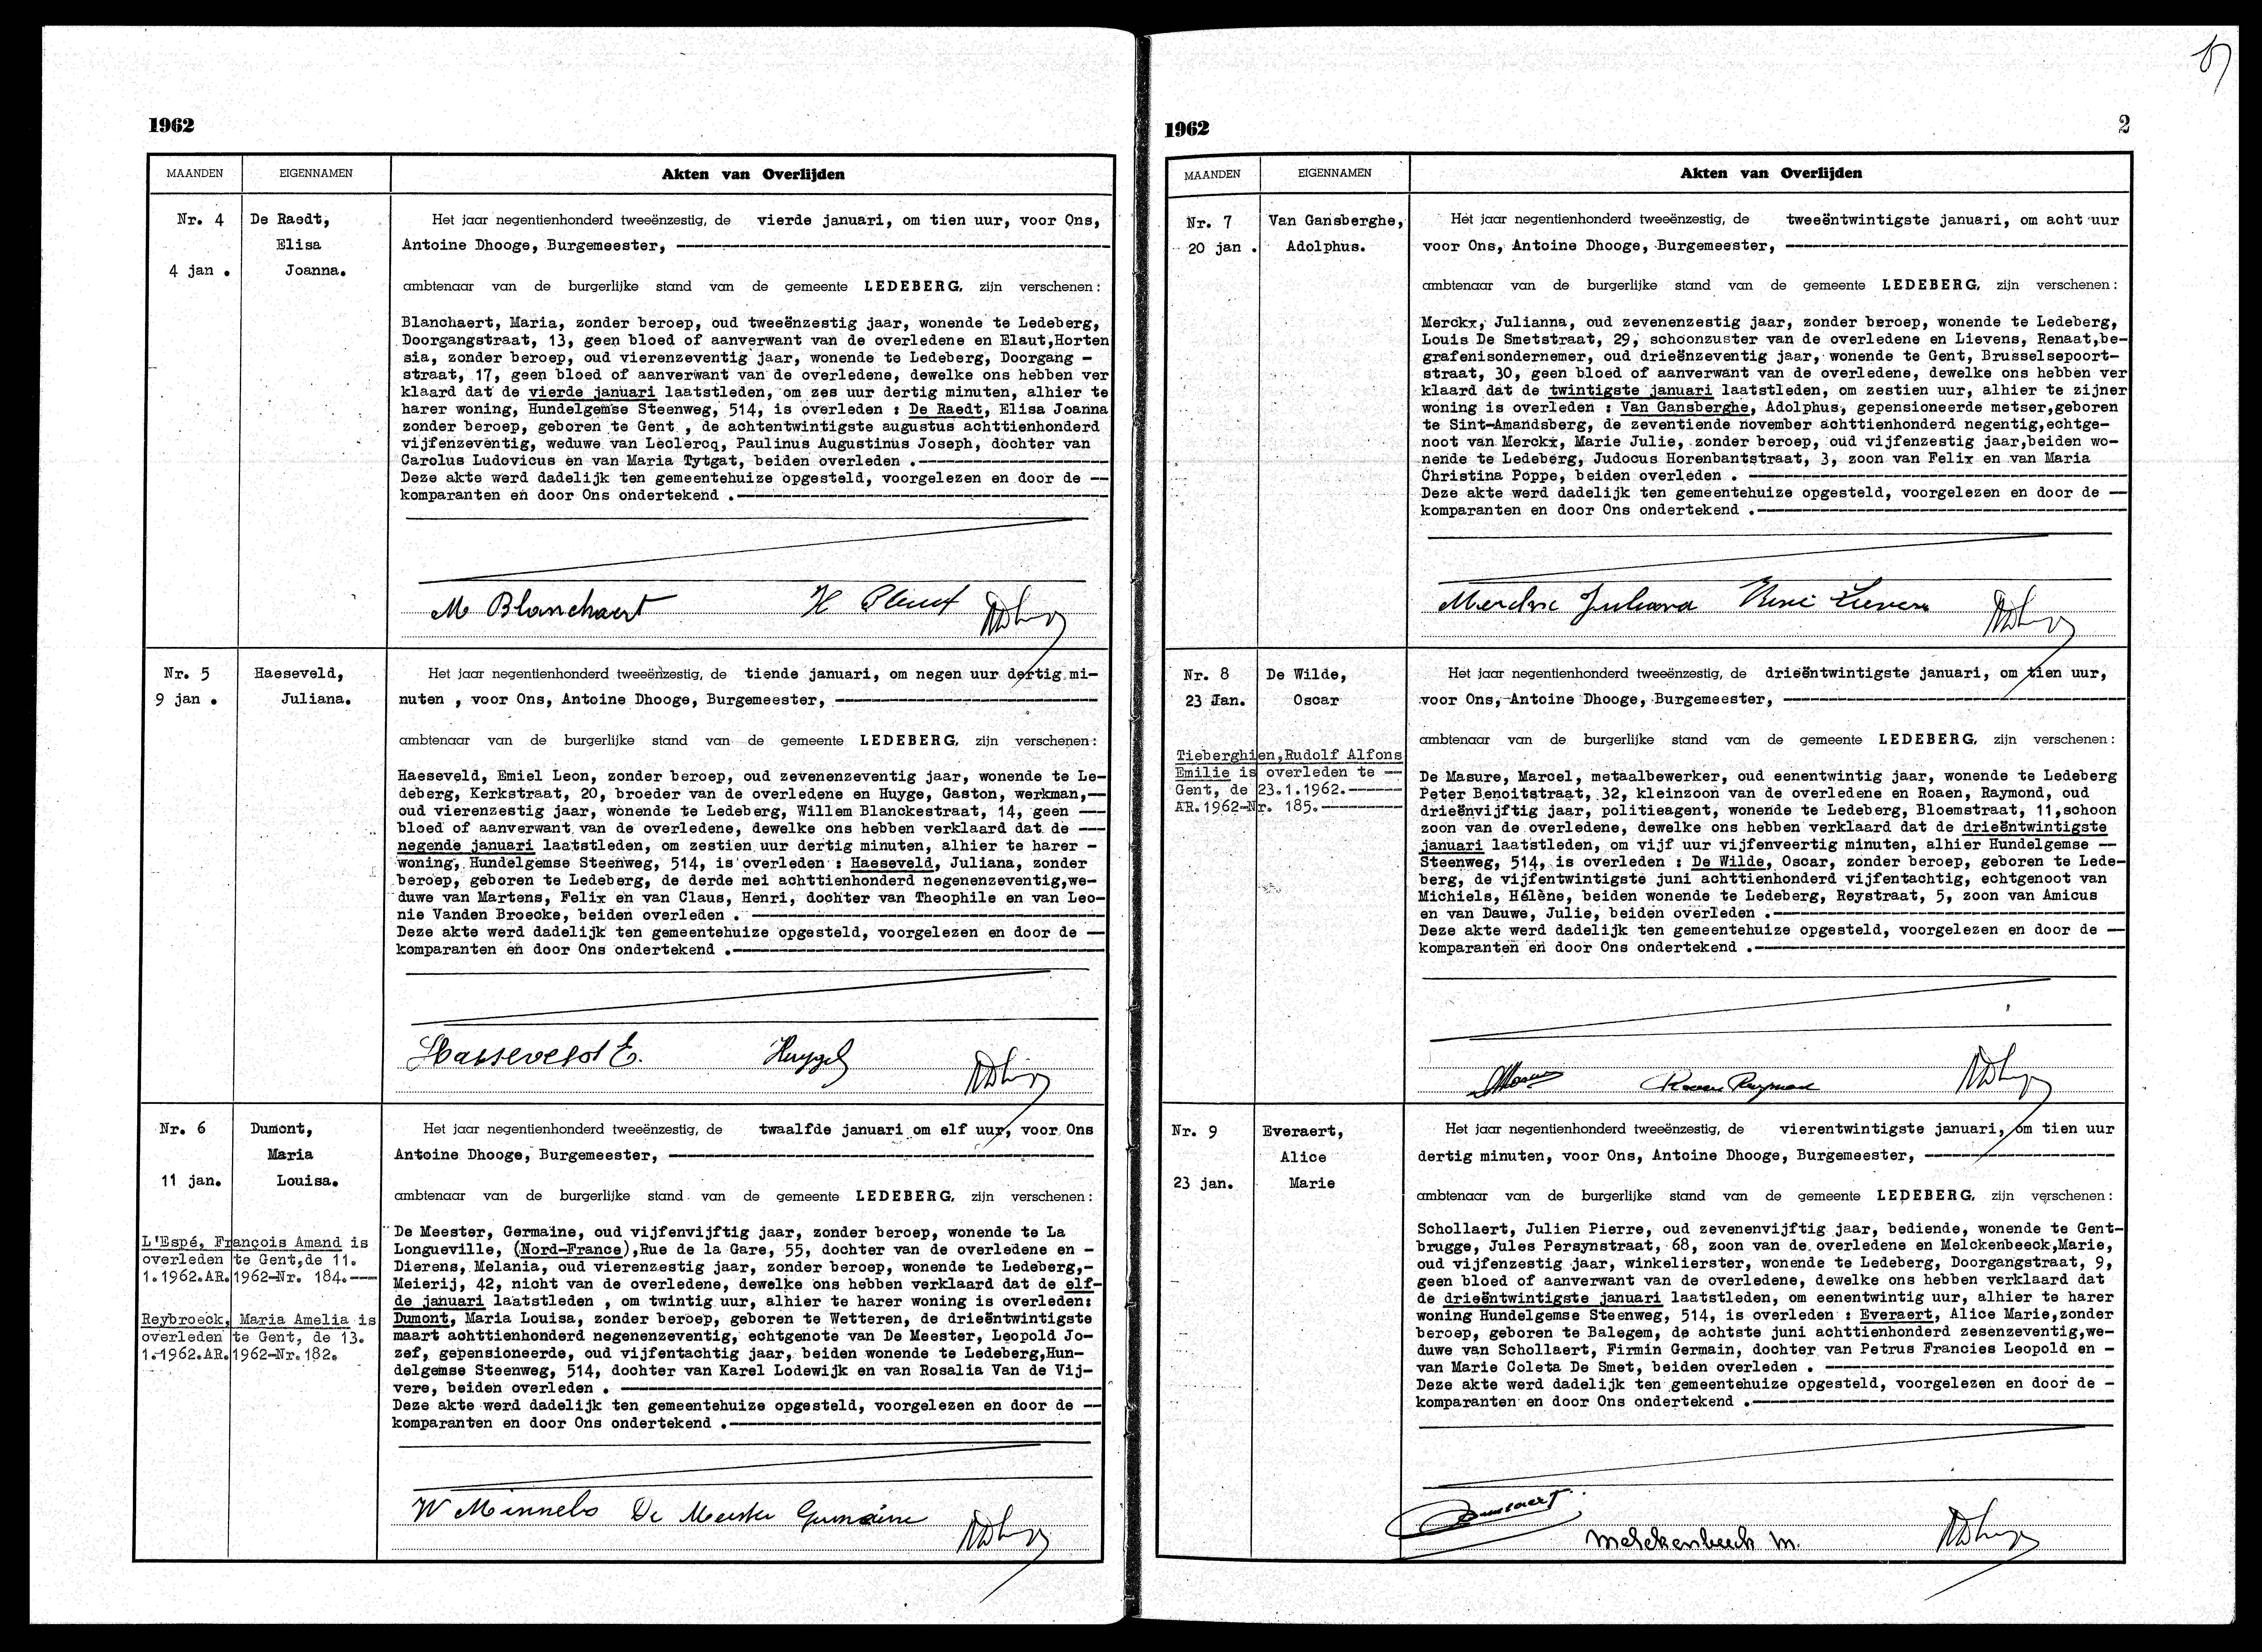 1962
MAANDEN
EIGENNAMEN
Akten van Overlijden
Nr. 4
4 jan .
De Raedt,
Elisa
Joanna.
Het jaar negentienhonderd tweeënzestig, de vierde januari, om tien uur, voor Ons,
Antoine Dhooge, Burgemeester,
ambtenaar van de burgerlijke stand van de gemeente LEDEBERG, zijn verschenen:
Blanchaert, Maria, zonder beroep, oud tweeënzestig jaar, wonende te Ledeberg,
Doorgangstraat, 13, geen bloed of aanverwant van de overledene en Elaut,Horten
sia, zonder beroep, oud vierenzeventig jaar, wonende te Ledeberg, Doorgang -
straat, 17, geen bloed of aanverwant van de overledene, dewelke ons hebben ver
klaard dat de vierde januari laatstleden, om zes uur dertig minuten, alhier te
harer woning, Hundelgemse Steenweg, 514, is overleden : De Raedt, Elisa Joanna
zonder beroep, geboren te Gent , de achtentwintigste augustus achttienhonderd
vijfenzeventig, weduwe van Leclercq, Paulinus Augustinus Joseph, dochter van
Carolus Ludovicus en van Maria Tytgat, beiden overleden .
Deze akte werd dadelijk ten gemeentehuize opgesteld, voorgelezen en door de
komparanten en door Ons ondertekend .
M Blanchaert
Nr. 5
9 jan .
Haeseveld,
Juliana.
Het jaar negentienhonderd tweeënzestig, de tiende januari, om negen uur dertig mi-
nuten , voor Ons, Antoine Dhooge, Burgemeester,
ambtenaar van de burgerlijke stand van de gemeente LEDEBERG, zijn verschenen:
Haeseveld, Emiel Leon, zonder beroep, oud zevenenzeventig jaar, wonende te Le-
deberg, Kerkstraat, 20, broeder van de overledene en Huyge, Gaston, werkman,
oud vierenzestig jaar, wonende te Ledeberg, Willem Blanckestraat, 14, geen
bloed of aanverwant van de overledene, dewelke ons hebben verklaard dat de
negende januari laatstleden, om zestien uur dertig minuten, alhier te harer -
woning, Hundelgemse Steenweg, 514, is overleden : Haeseveld, Juliana, zonder
beroep, geboren te Ledeberg, de derde mei achttienhonderd negenenzeventig,we-
duwe van Martens, Felix en van Claus, Henri, dochter van Theophile en van Leo-
nie Vanden Broecke, beiden overleden .
Deze akte werd dadelijk ten gemeentehuize opgesteld, voorgelezen en door de
komparanten en door Ons ondertekend .
Haeseveld E.
Nr. 6
11 jan.
Dumont,
Maria
Louisa.
L'Espé, François Amand is
overleden te Gent,de 11.
1.1962.AR.1962-Nr. 184.
Reybroeck, Maria Amelia is
overleden te Gent, de 13.
1.1962.AR.1962-Nr.182.
Het jaar negentienhonderd tweeënzestig, de twaalfde januari om elf uur, voor Ons
Antoine Dhooge, Burgemeester,
ambtenaar van de burgerlijke stand van de gemeente LEDEBERG, zijn verschenen:
De Meester, Germaine, oud vijfenvijftig jaar, zonder beroep, wonende te La
Longueville, (Nord-France),Rue de la Gare, 55, dochter van de overledene en -
Dierens, Melania, oud vierenzestig jaar, zonder beroep, wonende te Ledeberg,-
Meierij, 42, nicht van de overledene, dewelke ons hebben verklaard dat de elf-
de januari laatstleden , om twintig uur, alhier te harer woning is overleden:
Dumont, Maria Louisa, zonder beroep, geboren te Wetteren, de drieëntwintigste
maart achttienhonderd negenenzeventig, echtgenote van De Meester, Leopold Jo-
zef, gepensioneerde, oud vijfentachtig jaar, beiden wonende te Ledeberg,Hun-
delgemse Steenweg, 514, dochter van Karel Lodewijk en van Rosalia Van de Vij-
vere, beiden overleden .
Deze akte werd dadelijk ten gemeentehuize opgesteld, voorgelezen en door de
komparanten en door Ons ondertekend .
De Meester Germaine
1962
2
MAANDEN
EIGENNAMEN
Akten van Overlijden
Nr. 7
20 jan .
Van Gansberghe,
Adolphus.
Het jaar negentienhonderd tweeënzestig, de tweeëntwintigste januari, om acht uur
voor Ons, Antoine Dhooge, Burgemeester,
ambtenaar van de burgerlijke stand van de gemeente LEDEBERG, zijn verschenen:
Merckx, Julianna, oud zevenenzestig jaar, zonder beroep, wonende te Ledeberg,
Louis De Smetstraat, 29, schoonzuster van de overledene en Lievens, Renaat,be-
grafenisondernemer, oud drieënzeventig jaar, wonende te Gent, Brusselsepoort-
straat, 30, geen bloed of aanverwant van de overledene, dewelke ons hebben ver
klaard dat de twintigste januari laatstleden, om zestien uur, alhier te zijner
woning is overleden : Van Gansberghe, Adolphus, gepensioneerde metser,geboren
te Sint-Amandsberg, de zeventiende november achttienhonderd negentig,echtge-
noot van Merckx, Marie Julie, zonder beroep, oud vijfenzestig jaar,beiden wo-
nende te Ledeberg, Judocus Horenbantstraat, 3, zoon van Felix en van Maria
Christina Poppe, beiden overleden .
Deze akte werd dadelijk ten gemeentehuize opgesteld, voorgelezen en door de
komparanten en door Ons ondertekend .
Nr. 8
23 Jan.
De Wilde,
Oscar
Tieberghien,Rudolf Alfons
Emilie is overleden te
Gent, de 23.1.1962.
AR.1962-Nr. 185.
Het jaar negentienhonderd tweeënzestig, de drieëntwintigste januari, om tien uur,
voor Ons, Antoine Dhooge, Burgemeester,
ambtenaar van de burgerlijke stand van de gemeente LEDEBERG, zijn verschenen:
De Masure, Marcel, metaalbewerker, oud eenentwintig jaar, wonende te Ledeberg
Peter Benoitstraat, 32, kleinzoon van de overledene en Roaen, Raymond, oud
drieënvijftig jaar, politieagent, wonende te Ledeberg, Bloemstraat, 11,schoon
zoon van de overledene, dewelke ons hebben verklaard dat de drieëntwintigste
januari laatstleden, om vijf uur vijfenveertig minuten, alhier Hundelgemse
Steenweg, 514, is overleden : De Wilde, Oscar, zonder beroep, geboren te Lede-
berg, de vijfentwintigste juni achttienhonderd vijfentachtig, echtgenoot van
Michiels, Hélène, beiden wonende te Ledeberg, Reystraat, 5, zoon van Amicus
en van Dauwe, Julie, beiden overleden .
Deze akte werd dadelijk ten gemeentehuize opgesteld, voorgelezen en door de
komparanten en door Ons ondertekend .
Nr. 9
23 jan.
Everaert,
Alice
Marie
Het jaar negentienhonderd tweeënzestig, de vierentwintigste januari, om tien uur
dertig minuten, voor Ons, Antoine Dhooge, Burgemeester,
ambtenaar van de burgerlijke stand van de gemeente LEDEBERG, zijn verschenen:
Schollaert, Julien Pierre, oud zevenenvijftig jaar, bediende, wonende te Gent-
brugge, Jules Persynstraat, 68, zoon van de overledene en Melckenbeeck,Marie,
oud vijfenzestig jaar, winkelierster, wonende te Ledeberg, Doorgangstraat, 9,
geen bloed of aanverwant van de overledene, dewelke ons hebben verklaard dat
de drieëntwintigste januari laatstleden, om eenentwintig uur, alhier te harer
woning Hundelgemse Steenweg, 514, is overleden : Everaert, Alice Marie,zonder
beroep, geboren te Balegem, de achtste juni achttienhonderd zesenzeventig,we-
duwe van Schollaert, Firmin Germain, dochter van Petrus Francies Leopold en -
van Marie Coleta De Smet, beiden overleden .
Deze akte werd dadelijk ten gemeentehuize opgesteld, voorgelezen en door de -
komparanten en door Ons ondertekend .
Melckenbeeck M.